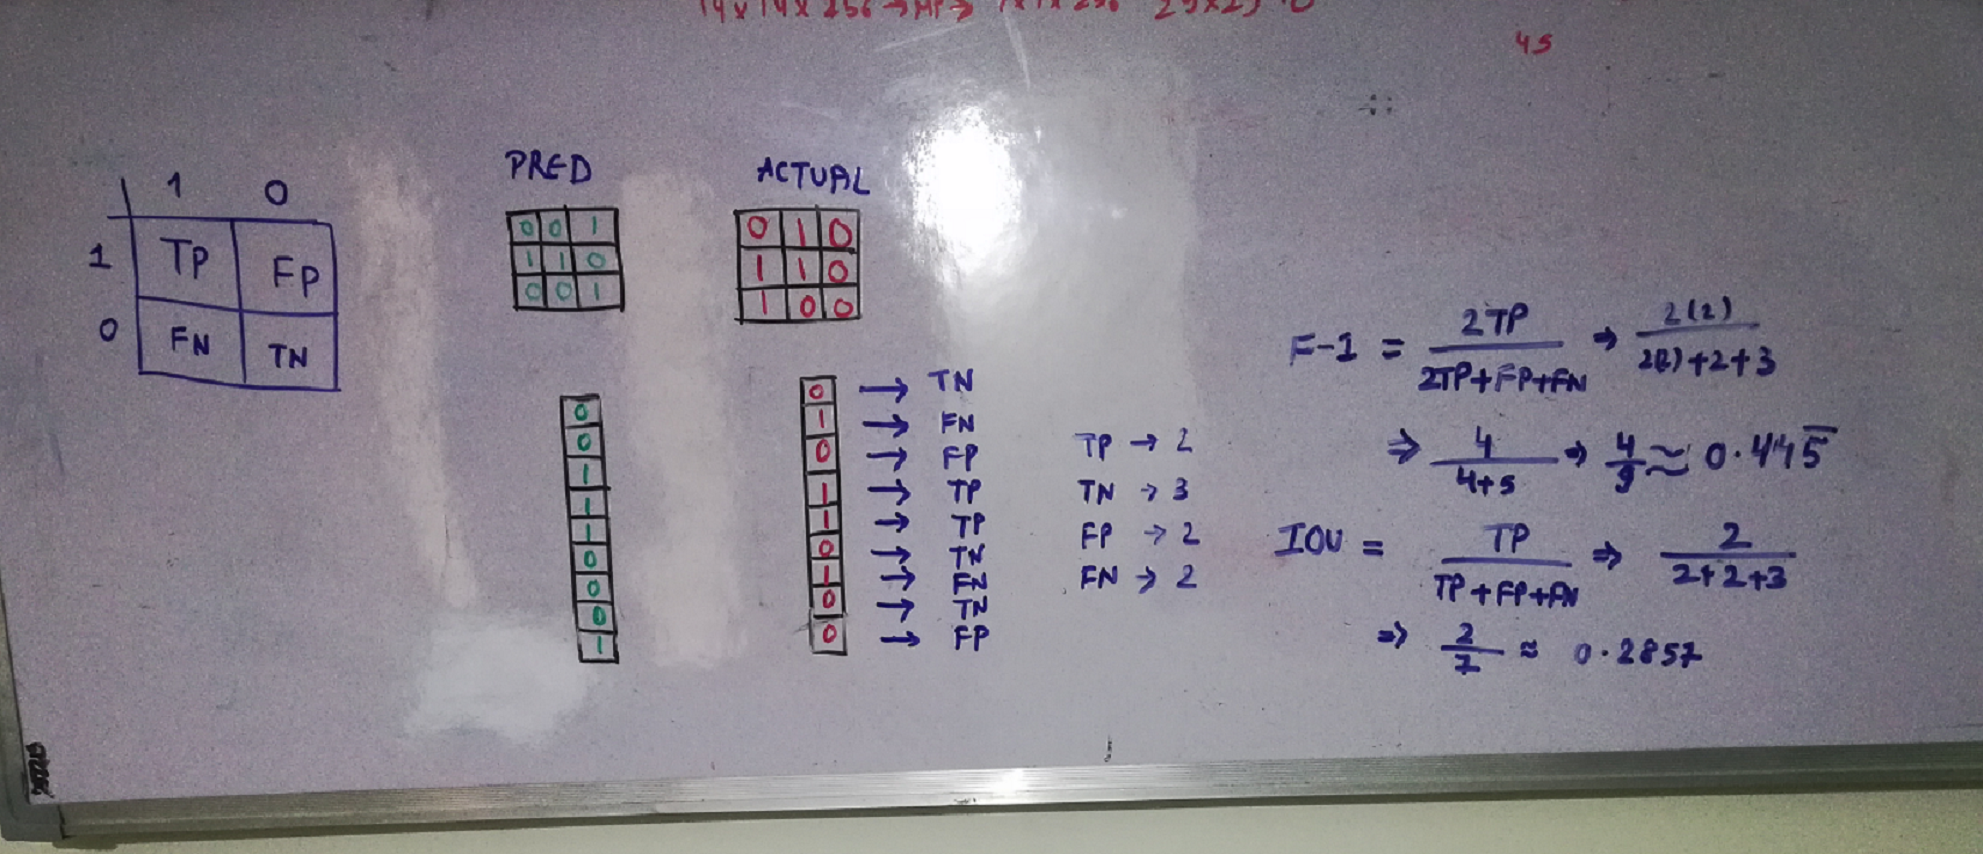 45
1 0
1 TP FP
0 FN TN
PRED
0 0 1
1 1 0
0 0 1
ACTUAL
0 1 0
1 1 0
1 0 0
0
0
1
1
1
0
0
0
1
0 → TN
1 → FN
0 → FP
1 → TP
1 → TP
0 → TN
1 → FN
0 → TN
0 → FP
TP → 2
TN → 3
FP → 2
FN → 2
F-1 = 2TP / 2TP+FP+FN ⇒ 2(2) / 2(2)+2+3
⇒ 4 / 4+5 ⇒ 4/9 ≈ 0.445̅
IOU = TP / TP+FP+FN ⇒ 2 / 2+2+3
⇒ 2/7 ≈ 0.2857